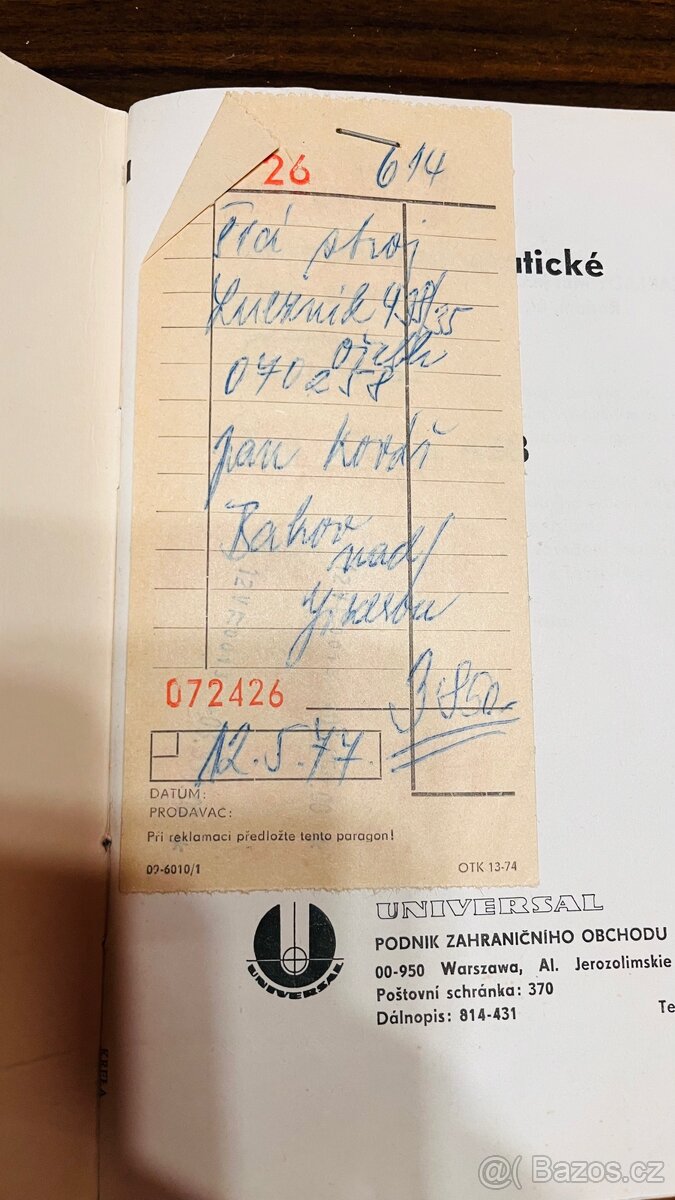 26 614
stroj
Lucznik 438/35
ořech
070258
pan Kovář
Bakov
nad/
Jizerou
072426
3850.-
12.5.77.
DATUM:
PRODAVAČ:
Při reklamaci předložte tento paragon!
09-6010/1 OTK 13-74
atické
UNIVERSAL
UNIVERSAL
PODNIK ZAHRANIČNÍHO OBCHODU
00-950 Warszawa, Al. Jerozolimskie
Poštovní schránka: 370
Dálnopis: 814-431
Te
@ Bazos.cz